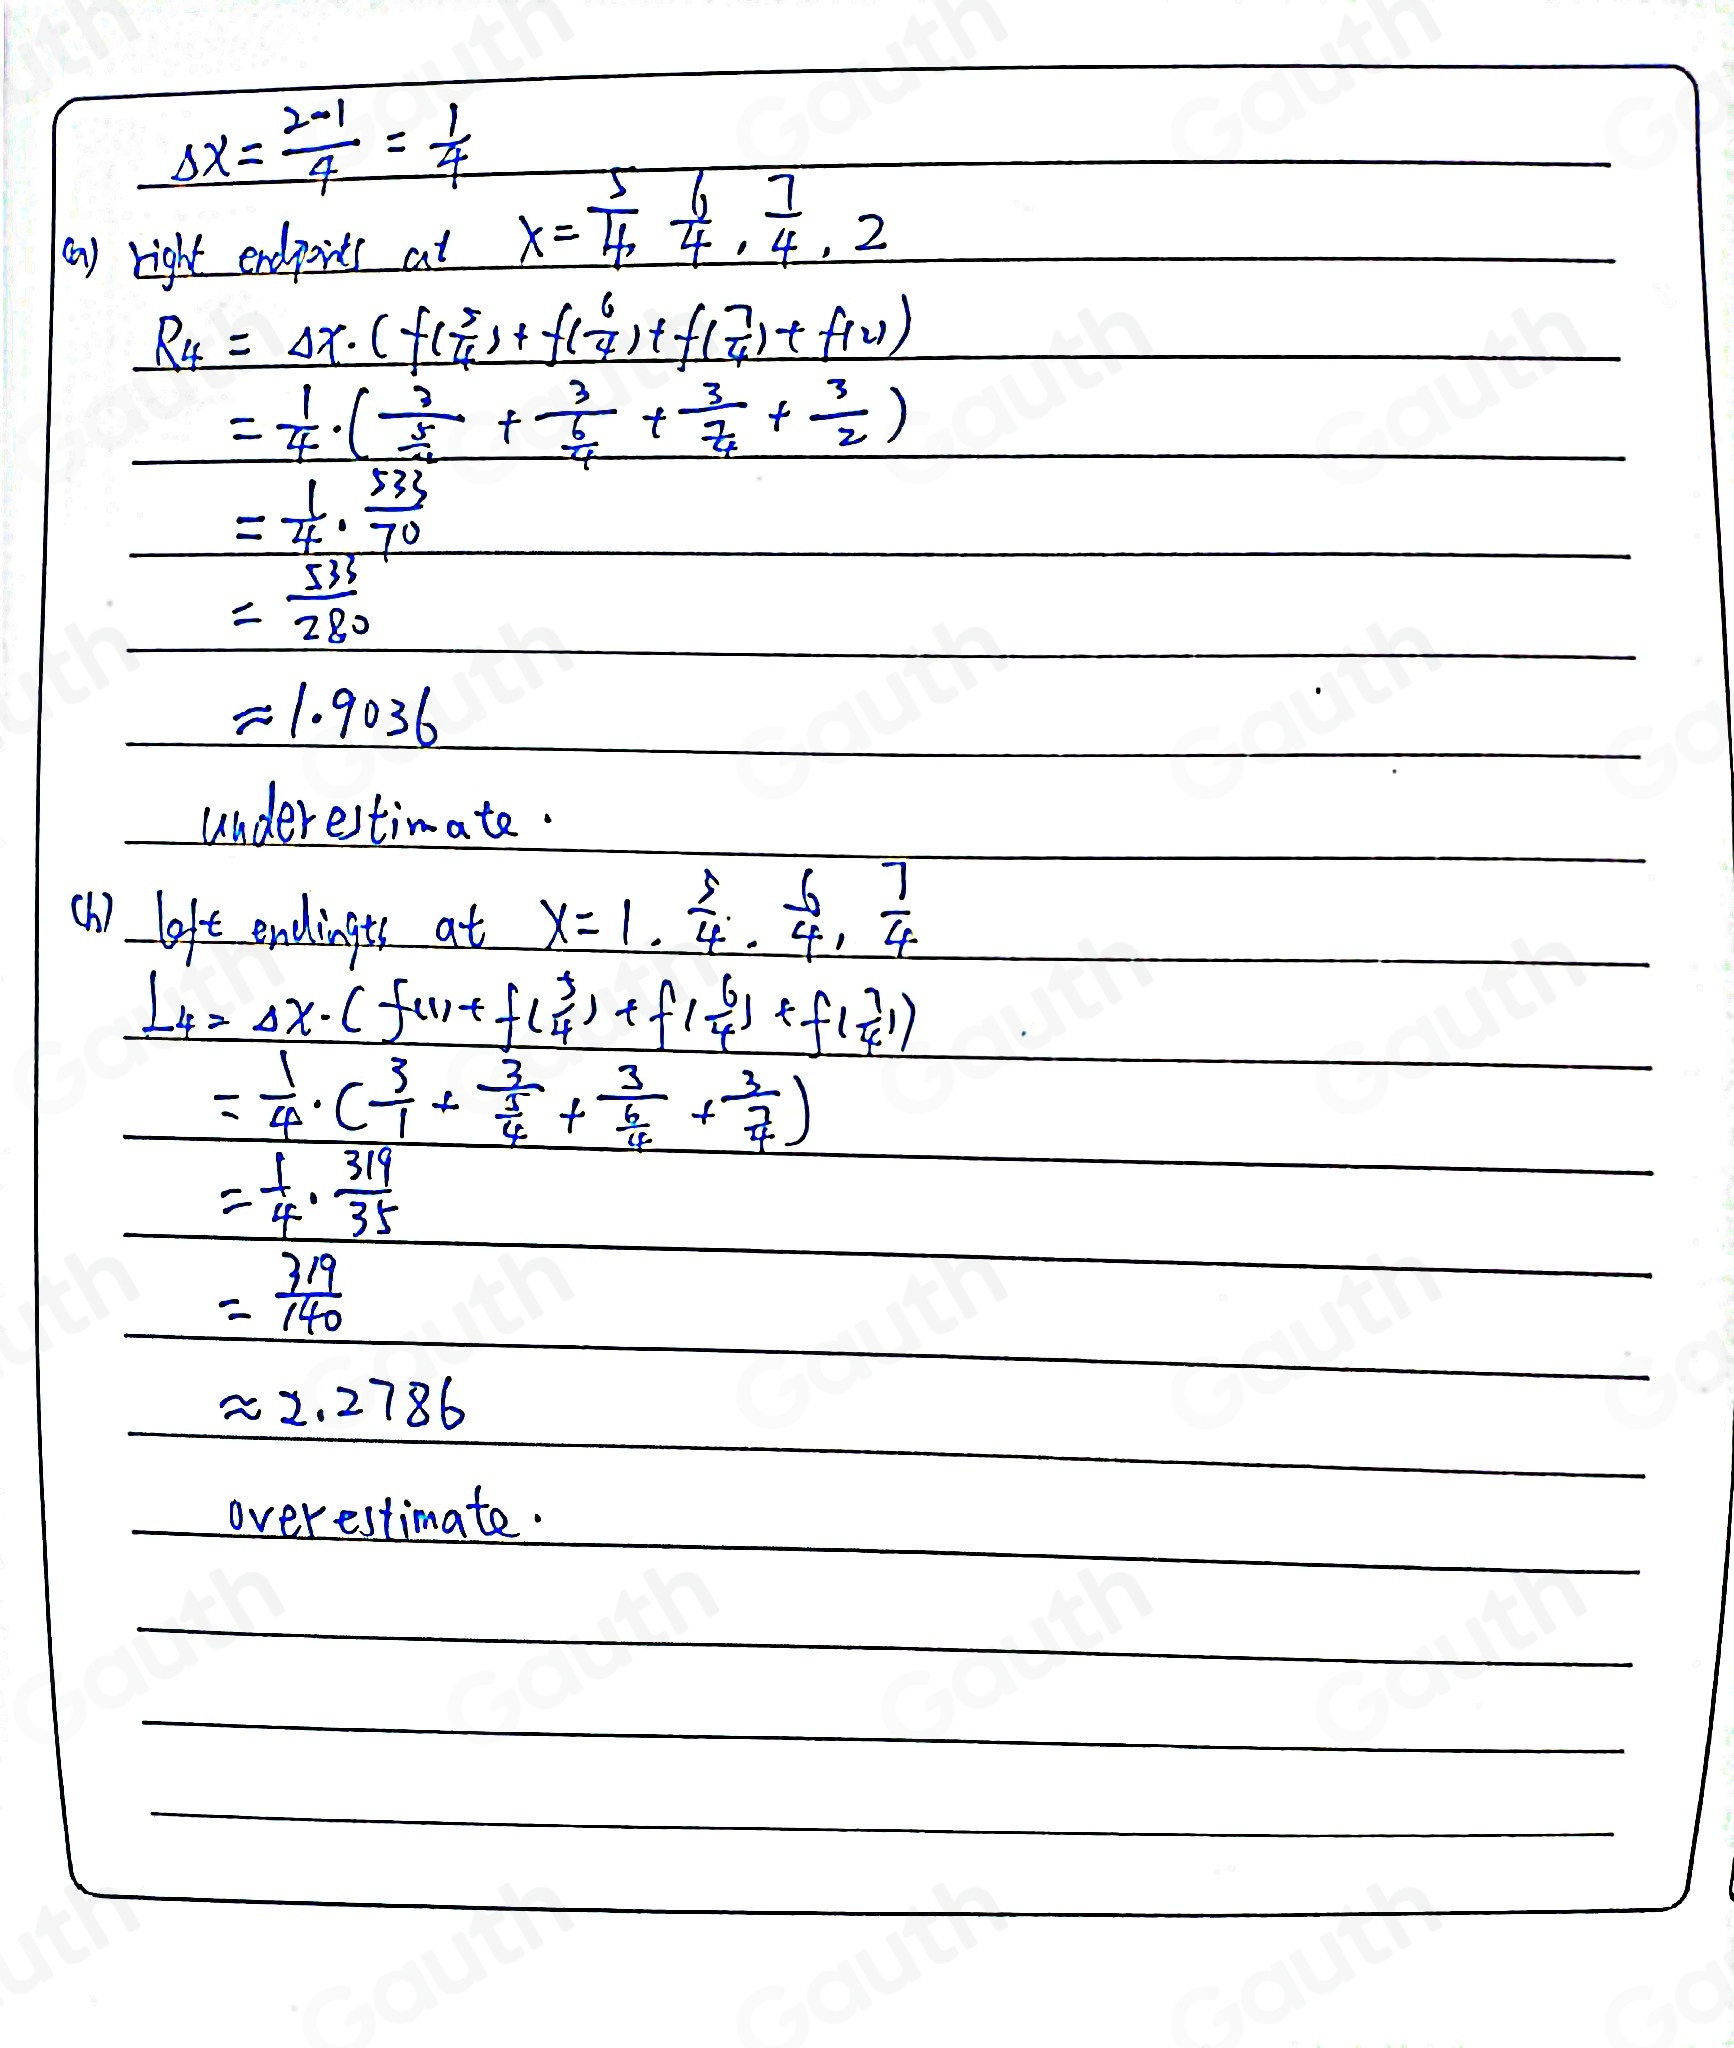 Δx = (2-1)/4 = 1/4
(a) right endpoints at x = 5/4, 6/4, 7/4, 2
R4 = Δx·(f(5/4)+f(6/4)+f(7/4)+f(2))
= 1/4·(3/(5/4) + 3/(6/4) + 3/(7/4) + 3/2)
= 1/4 · 533/70
= 533/280
≈ 1.9036
underestimate.
(b) left at x = 1, 5/4, 6/4, 7/4
L4 = Δx·(f(1)+f(5/4)+f(6/4)+f(7/4))
= 1/4·(3/1 + 3/(5/4) + 3/(6/4) + 3/(7/4))
= 1/4 · 319/35
= 319/140
≈ 2.2786
overestimate.
Gauth